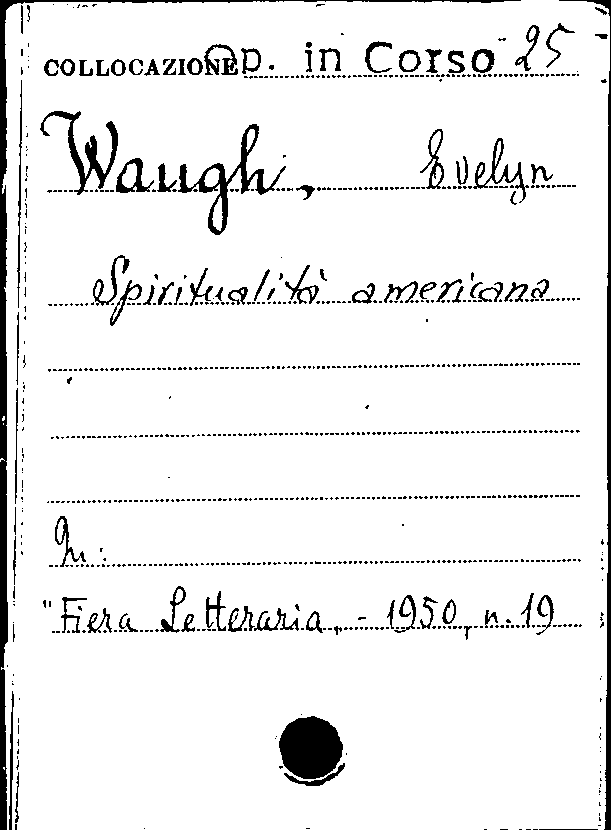 COLLOCAZIONE Op. in Corso 25
Waugh, Evelyn
Spiritualità americana
In:
"Fiera Letteraria, - 1950, n. 19